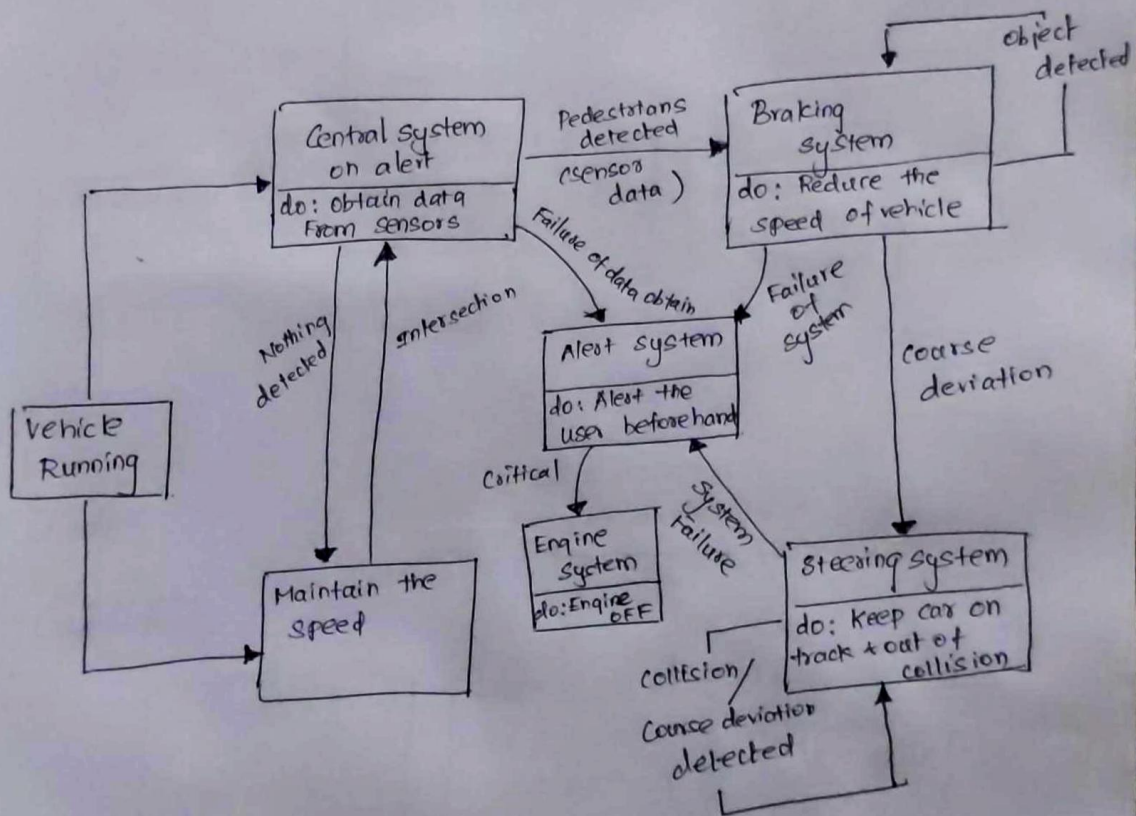 object
detected
Central system
on alert
do: obtain data
from sensors
Pedestrians
detected
(sensor
data)
Braking
system
do: Reduce the
speed of vehicle
Failure of data obtain
Failure
of
system
Nothing
detected
Intersection
Alert system
do: Alert the
user beforehand
coarse
deviation
Vehicle
Running
Critical
System
Failure
Engine
System
do: Engine
OFF
Steering system
do: Keep car on
track + out of
collision
Maintain the
speed
Collision/
Coarse deviation
detected